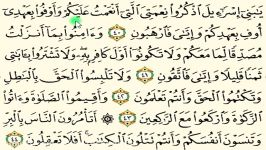 يَٰبَنِيٓ إِسۡرَٰٓءِيلَ ٱذۡكُرُواْ نِعۡمَتِيَ ٱلَّتِيٓ أَنۡعَمۡتُ عَلَيۡكُمۡ وَأَوۡفُواْ بِعَهۡدِيٓ
أُوفِ بِعَهۡدِكُمۡ وَإِيَّٰيَ فَٱرۡهَبُونِ ٤٠ وَءَامِنُواْ بِمَآ أَنزَلۡتُ
مُصَدِّقٗا لِّمَا مَعَكُمۡ وَلَا تَكُونُوٓاْ أَوَّلَ كَافِرِۭ بِهِۦۖ وَلَا تَشۡتَرُواْ بِـَٔايَٰتِي
ثَمَنٗا قَلِيلٗا وَإِيَّٰيَ فَٱتَّقُونِ ٤١ وَلَا تَلۡبِسُواْ ٱلۡحَقَّ بِٱلۡبَٰطِلِ
وَتَكۡتُمُواْ ٱلۡحَقَّ وَأَنتُمۡ تَعۡلَمُونَ ٤٢ وَأَقِيمُواْ ٱلصَّلَوٰةَ وَءَاتُواْ
وَتَنسَوۡنَ أَنفُسَكُمۡ وَأَنتُمۡ تَتۡلُونَ ٱلۡكِتَٰبَۚ أَفَلَا تَعۡقِلُونَ ٤٤